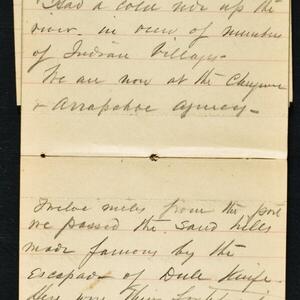 Had a cold ride up the
river in view of number
of Indian Village
We are now at the Cheyenne
& Arrapahoe agency
Twelve miles from the post
we passed the sand hills
made famous by the
Escapade of Dull Knife